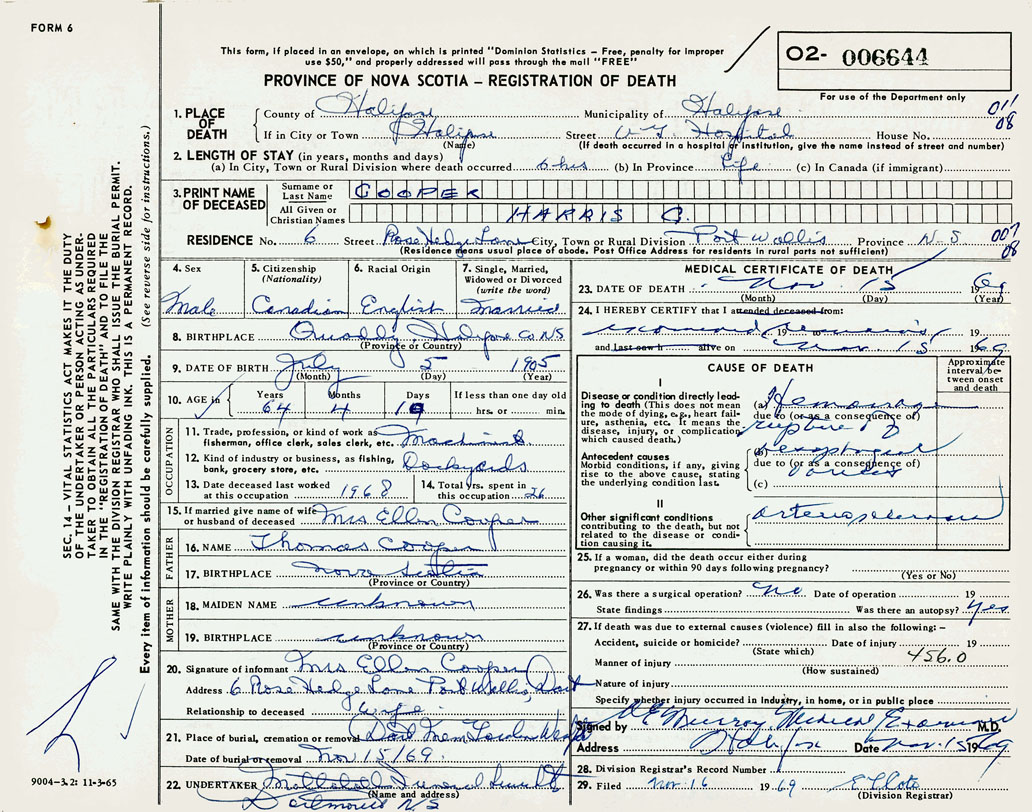 FORM 6
This form, if placed in an envelope, on which is printed "Dominion Statistics – Free, penalty for improper
use $50," and properly addressed will pass through the mail "FREE"
PROVINCE OF NOVA SCOTIA – REGISTRATION OF DEATH
O2- 006644
For use of the Department only
1. PLACE OF DEATH
County of Halifax Municipality of Halifax 011 08
If in City or Town Halifax Street V.G. Hospital House No.
(Name) (If death occurred in a hospital or institution, give the name instead of street and number)
2. LENGTH OF STAY (in years, months and days)
(a) In City, Town or Rural Division where death occurred 6 hrs (b) In Province Life (c) In Canada (if immigrant)
3. PRINT NAME OF DECEASED
Surname or Last Name COOPER
All Given or Christian Names HARRIS C.
RESIDENCE No. 6 Street Rose Hedge Lane City, Town or Rural Division Port Wallis Province N.S 007 08
(Residence means usual place of abode. Post Office Address for residents in rural parts not sufficient)
4. Sex Male
5. Citizenship (Nationality) Canadian
6. Racial Origin English
7. Single, Married, Widowed or Divorced (write the word) Married
8. BIRTHPLACE Halifax Co NS
(Province or Country)
9. DATE OF BIRTH July 5 1905
(Month) (Day) (Year)
10. AGE in Years 64 Months 4 Days 10 If less than one day old hrs. or min.
OCCUPATION
11. Trade, profession, or kind of work as fisherman, office clerk, sales clerk, etc. Machinist
12. Kind of industry or business, as fishing, bank, grocery store, etc. Dockyards
13. Date deceased last worked at this occupation 1968
14. Total yrs. spent in this occupation 26
15. If married give name of wife or husband of deceased Mrs Ellen Cooper
FATHER
16. NAME Thomas Cooper
17. BIRTHPLACE Nova Scotia
(Province or Country)
MOTHER
18. MAIDEN NAME unknown
19. BIRTHPLACE unknown
(Province or Country)
20. Signature of informant Mrs Ellen Cooper
Address 6 Rose Hedge Lane Port Wallis, Dart
Relationship to deceased wife
21. Place of burial, cremation or removal Dart Mem
Date of burial or removal Nov 15/69
22. UNDERTAKER Funeral
(Name and address)
Dartmouth N.S
MEDICAL CERTIFICATE OF DEATH
23. DATE OF DEATH Nov. 15 1969
(Month) (Day) (Year)
24. I HEREBY CERTIFY that I attended deceased from:
examined remains 19 to 19
and last saw h alive on Nov. 15 1969
CAUSE OF DEATH
Approximate interval between onset and death
I
Disease or condition directly leading to death (This does not mean the mode of dying, e.g., heart failure, asthenia, etc. It means the disease, injury, or complication which caused death.)
(a) Hemorrhage
due to (or as a consequence of)
rupture of
Antecedent causes
Morbid conditions, if any, giving rise to the above cause, stating the underlying condition last.
(b) esophageal
due to (or as a consequence of)
varices
(c)
II
Other significant conditions contributing to the death, but not related to the disease or condition causing it.
arteriosclerosis
25. If a woman, did the death occur either during pregnancy or within 90 days following pregnancy?
(Yes or No)
26. Was there a surgical operation? no Date of operation 19
State findings Was there an autopsy? Yes
27. If death was due to external causes (violence) fill in also the following: –
Accident, suicide or homicide? Date of injury 19
(State which) 456.0
Manner of injury
(How sustained)
Nature of injury
Specify whether injury occurred in Industry, in home, or in public place
Signed by Murray Medical Examiner M.D.
Address Halifax Date Nov. 15 1969
28. Division Registrar's Record Number
29. Filed Nov 16 1969
(Division Registrar)
SEC. 14 – VITAL STATISTICS ACT MAKES IT THE DUTY
OF THE UNDERTAKER OR PERSON ACTING AS UNDER-
TAKER TO OBTAIN ALL THE PARTICULARS REQUIRED
IN THE "REGISTRATION OF DEATH" AND TO FILE THE
SAME WITH THE DIVISION REGISTRAR WHO SHALL ISSUE THE BURIAL PERMIT.
WRITE PLAINLY WITH UNFADING INK. THIS IS A PERMANENT RECORD.
Every item of information should be carefully supplied. (See reverse side for instructions.)
9004-3.2: 11-3-65